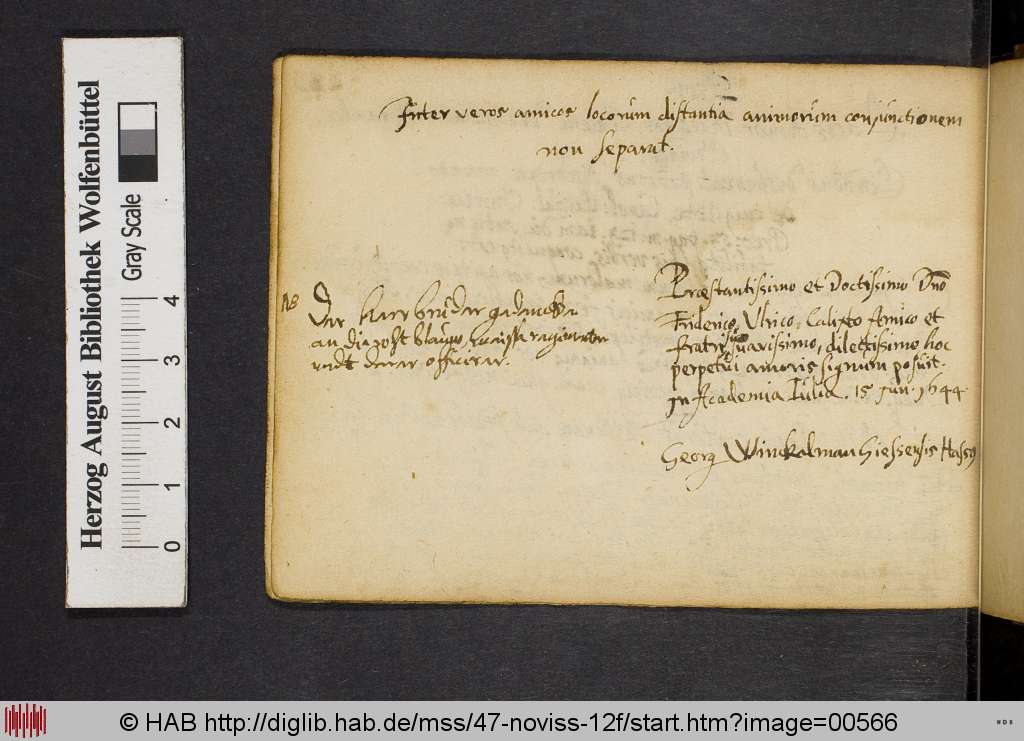 Inter veros amicos locorum distantia animorum conjunctionem
non separat.
NB
Der Herr bruder gedencke
an die
undt deren officirer.
Præstantissimo et Doctissimo Dno
Friderico Ulrico Calixto Amico et
fratri suo suavissimo, dilectissimo hoc
perpetui amoris signum posuit.
In Academia Iulia. 15 Jun. 1644
Georg Winckelman Giessensis Hassus
Herzog August Bibliothek Wolfenbüttel
Gray Scale
0 1 2 3 4
© HAB http://diglib.hab.de/mss/47-noviss-12f/start.htm?image=00566
WDB